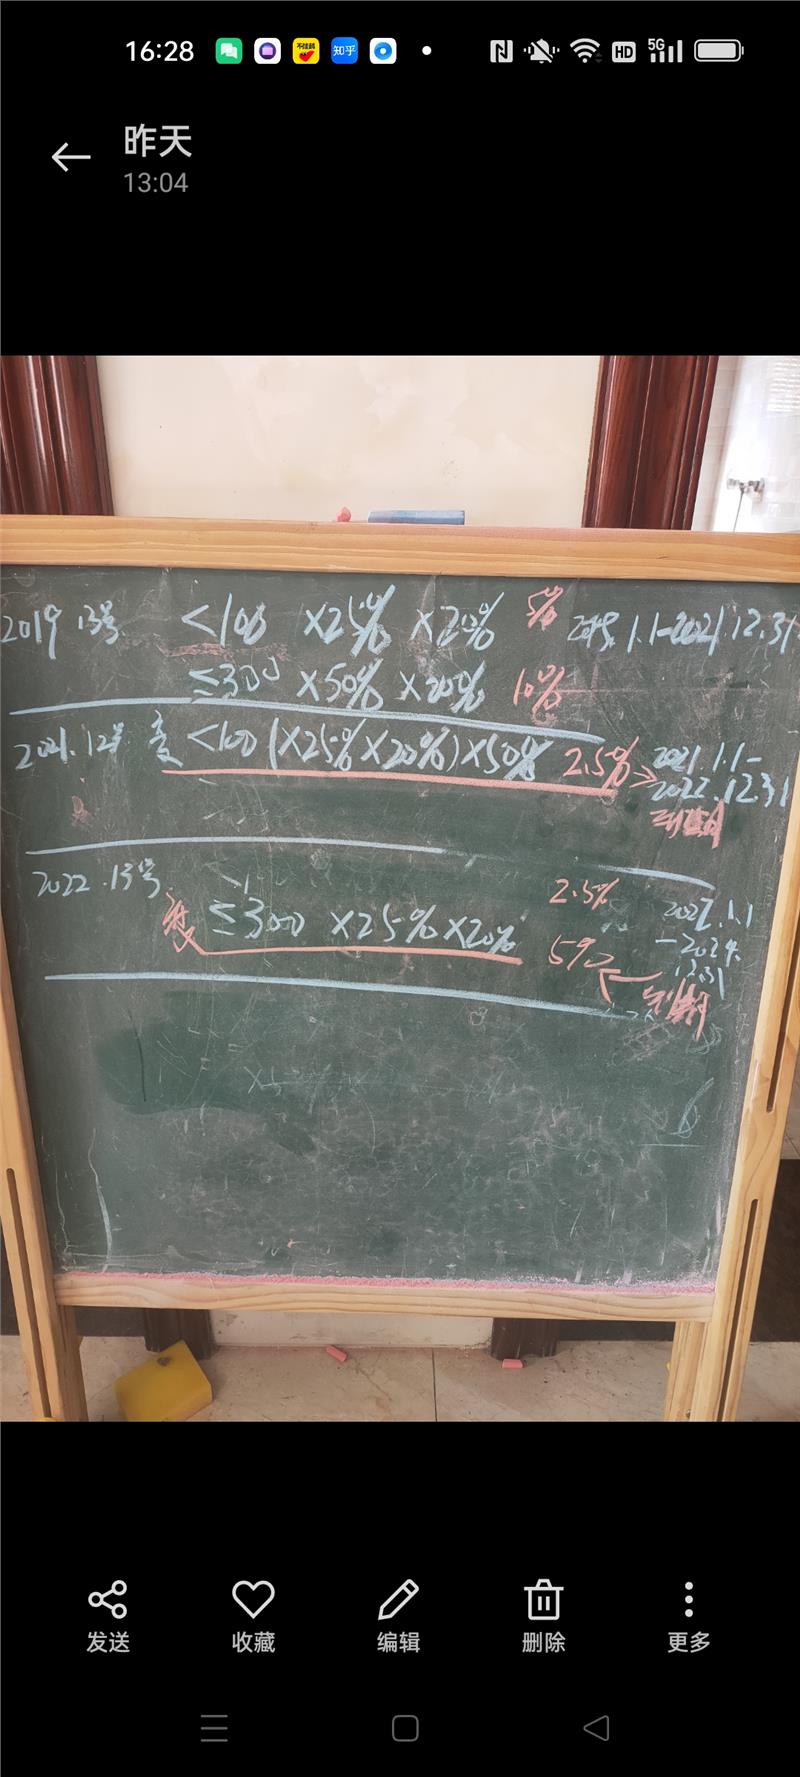 16:28 不佳鹅 知乎 HD 5G
昨天
13:04
2019 13号 <100 ×25% ×20% 5% 2019.1.1-2021.12.31
≤300 ×50% ×20% 10%
2021.12号 变 <100 (×25%×20%)×50% 2.5% 2021.1.1-
2022.12.31
到期
2022.13号 2.5%
变 ≤300 ×25%×20% 5% 2022.1.1
-2024.
12.31
到期
发送 收藏 编辑 删除 更多